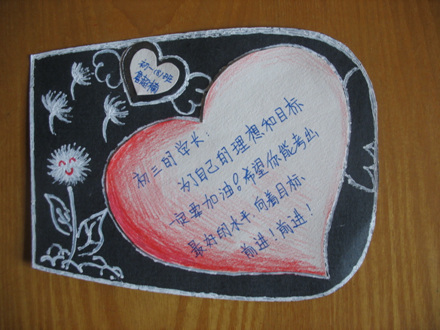 初三的学长：
为自己的理想和目标
一定要加油。希望你能考出
最好的水平，向着目标、
前进！前进！